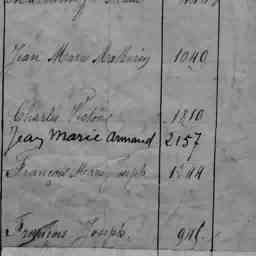 Jean Marie Mathurin 1040
Charles Victor 1310
Jean Marie Armand 2157
François Marie Joseph
François Joseph. 946